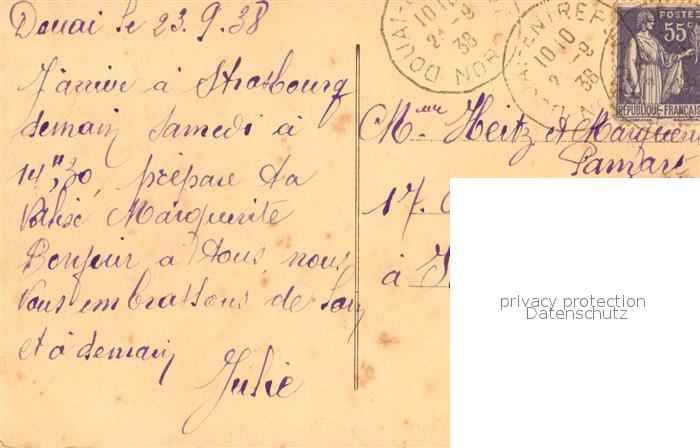 Douai le 23.9.38
J'arrive à Strasbourg
demain Samedi à
14"30, prépare ta
valise Marguerite
Bonjour à tous, nous
vous embrassons de loin
et à demain
Julie
DOUAI-
10 10
2 -9
38
NORD
ENTREP
10 10
2 -9
38
POSTES
55c
REPUBLIQUE-FRANÇAISE
Mme Heitz et Marguerite
17.
à
privacy protection
Datenschutz